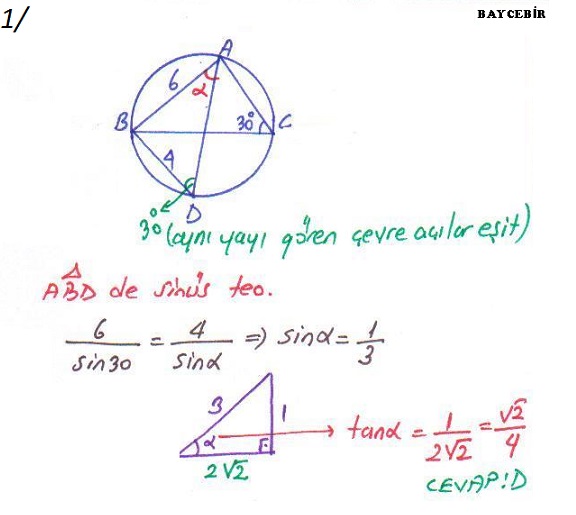 1/
BAYCEBİR
A
6
α
B
30°
C
4
D
30° (aynı yayı gören çevre açılar eşit)
ABD de sinüs teo.
6/sin30 = 4/sinα ⇒ sinα = 1/3
3
1
α
2√2
tanα = 1/2√2 = √2/4
CEVAP:D